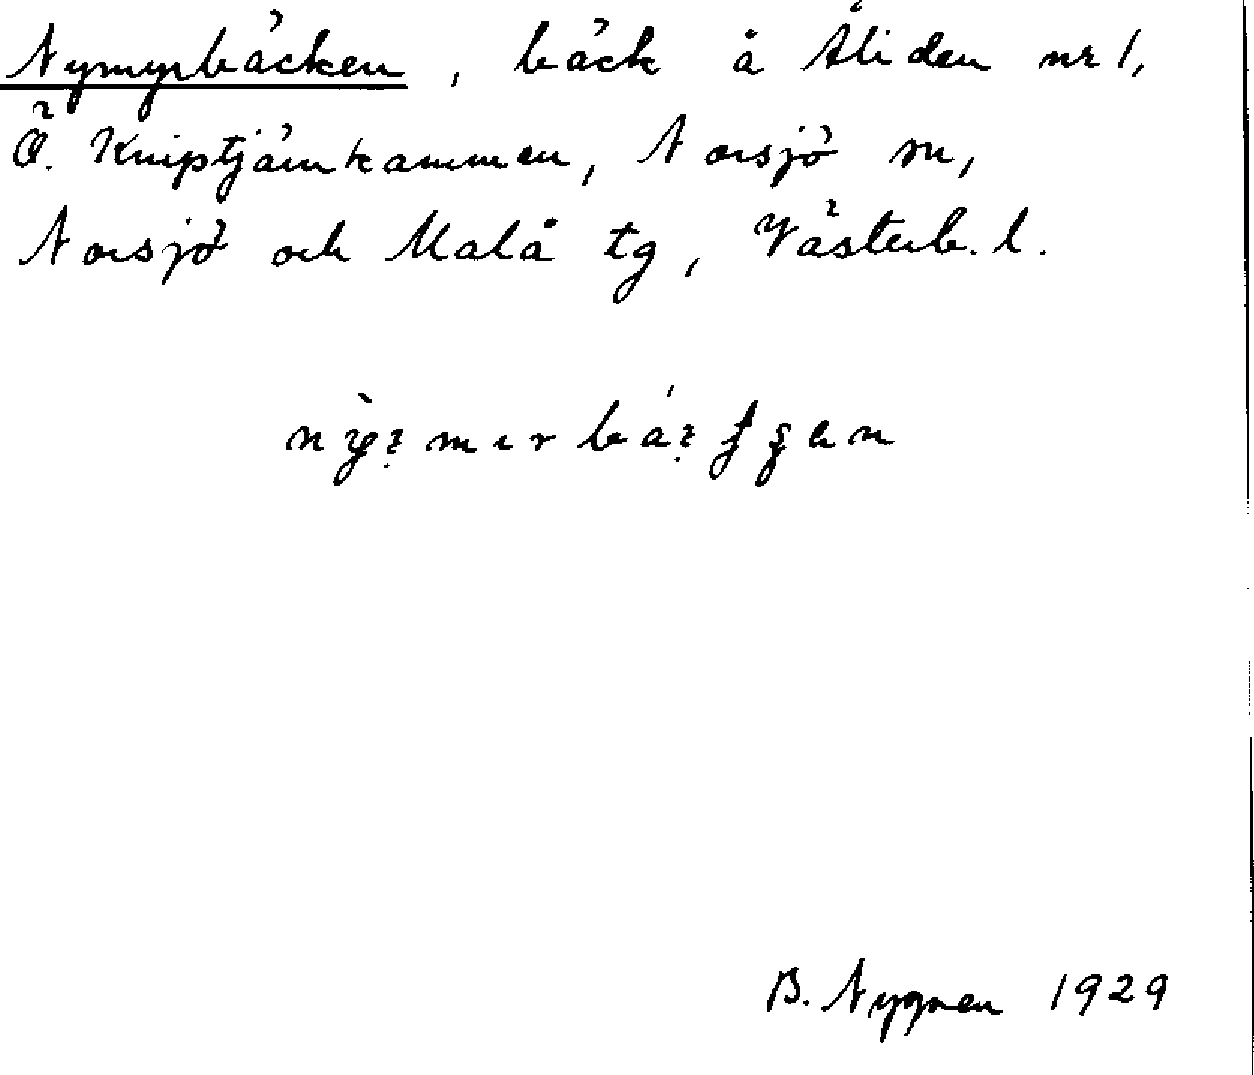 Nymyrbäcken, bäck å Åliden nr 1,
Ö. Kniptjärnkammen, Norsjö sn,
Norsjö och Malå tg, Västerb. l.
B. Nygren 1929